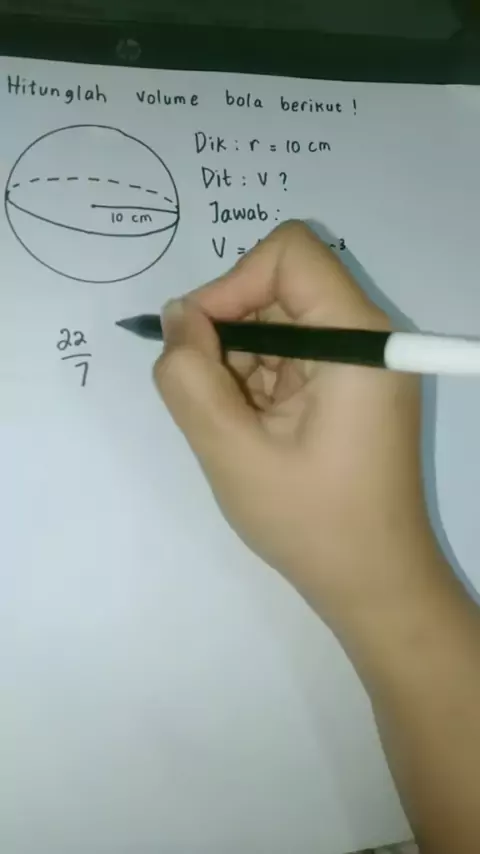 Hitunglah volume bola berikut !
Dik : r = 10 cm
Dit : V ?
10 cm
Jawab :
V =
3
22
7